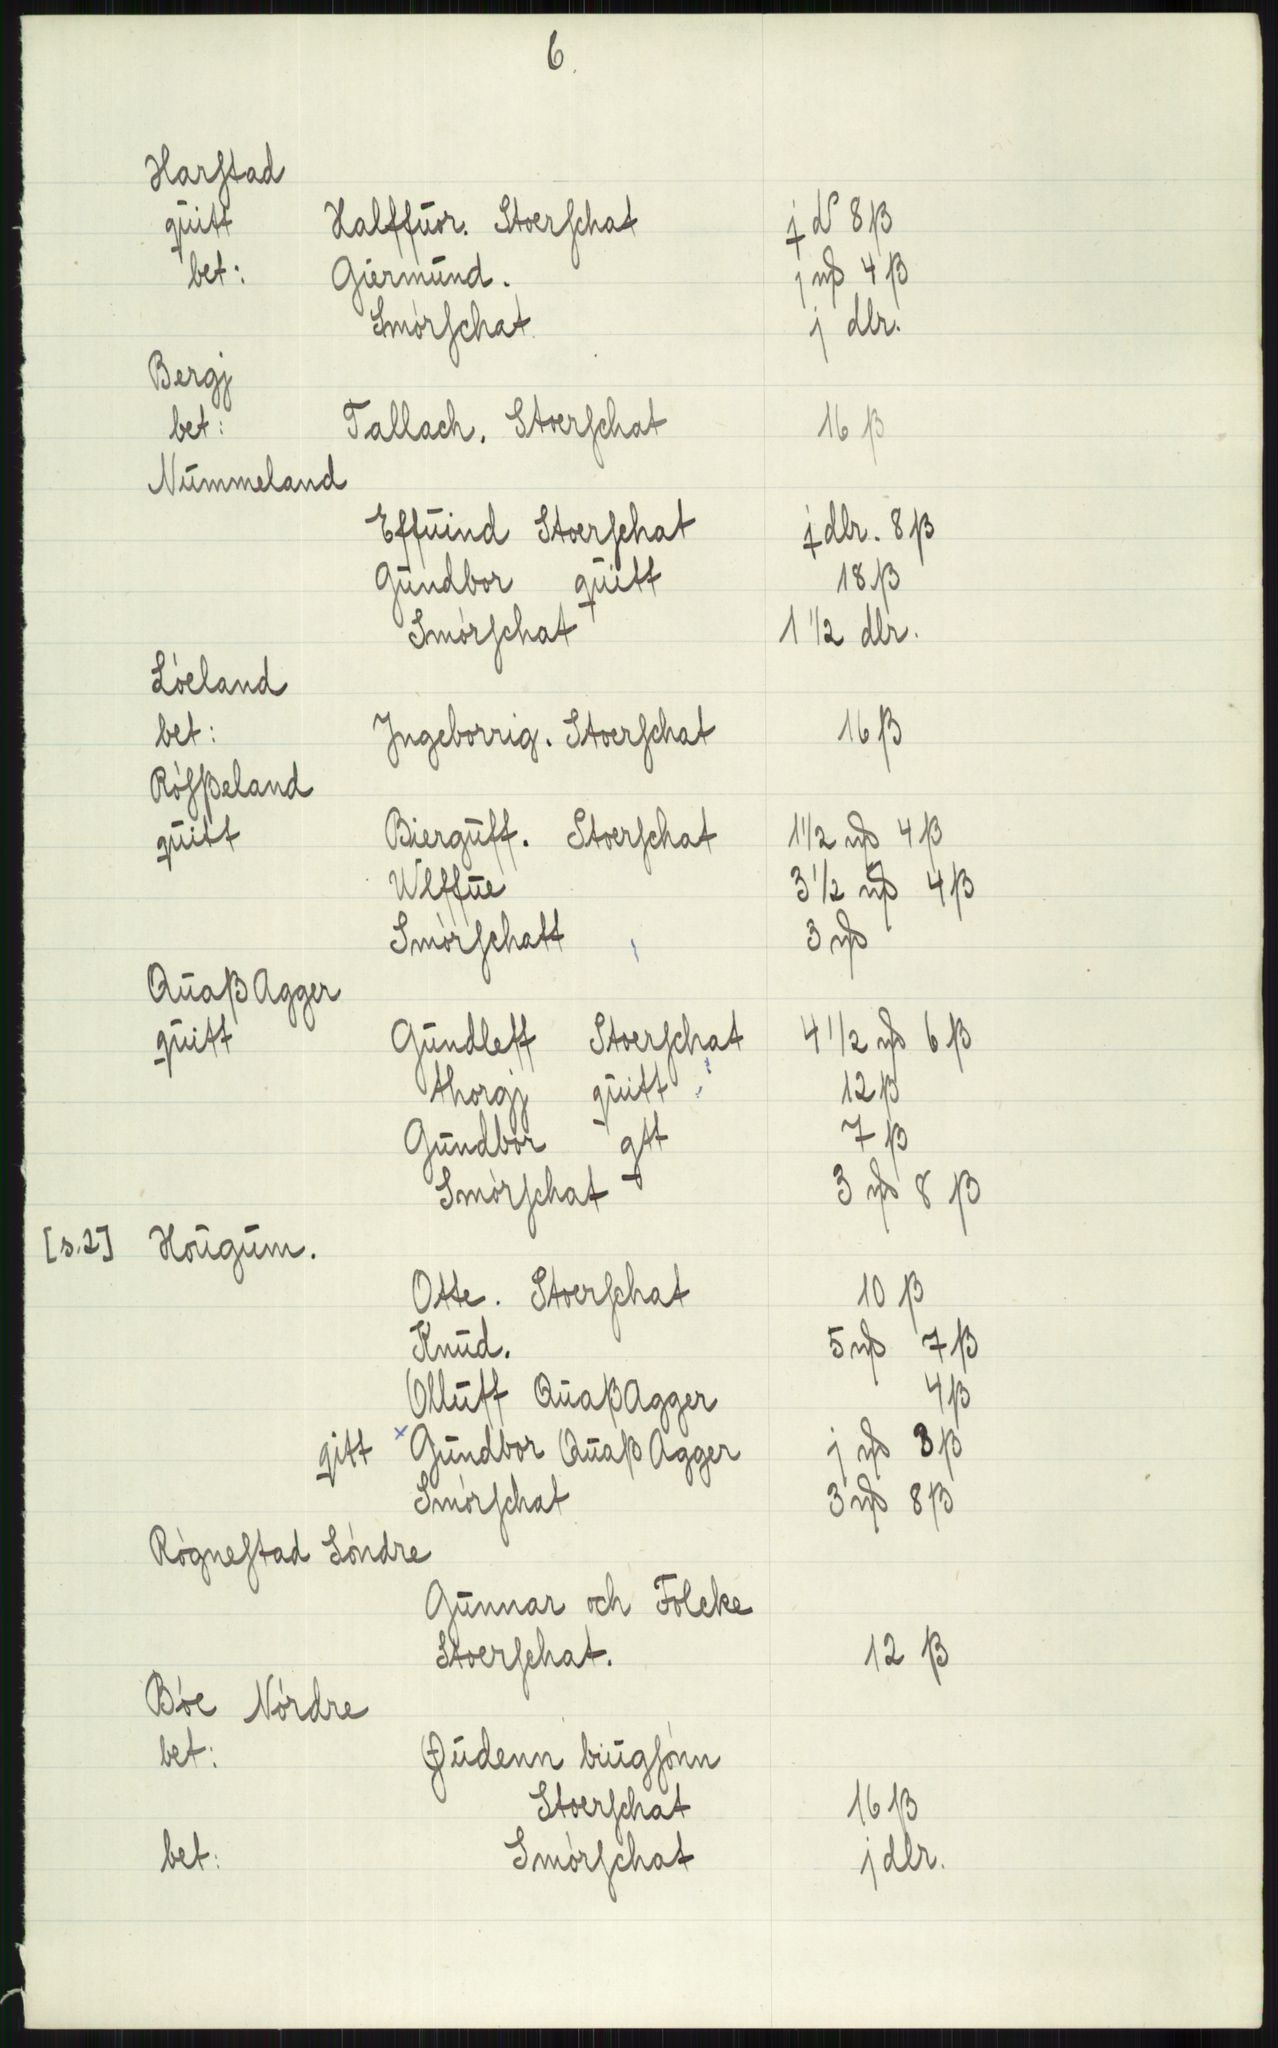 6.
Harstad
quitt Halffuor. Stoerschat j d 8 β
bet: Giermund. j 4 β
Smórschat j dlr.
Bergj
bet: Tallach. Stoerschat 16 β
Nummeland
Effuind Stoerschat j dlr. 8 β
Gundbor quitt 18 β
Smórschat 1 1/2 dlr.
Lóeland
bet: Jngeborrig. Stoerschat 16 β
Rósβeland
quitt Bierguff. Stoerschat 1 1/2 4 β
Wlffue 3 1/2 4 β
Smórschatt 3
Quaβ Agger
quitt Gundleff Stoerschat 4 1/2 6 β
thorgj quitt 12 β
Gundbor qtt 7 β
Smórschat 3 8 β
[s.2] Hougum.
Otte. Stoerschat 10 β
Knud. 5 7 β
Olluff Quaβ Agger 4 β
qitt x Gundbor Quaβ Agger j 8 β
Smórschat 3 8 β
Rógnestad Sóndre
Gunnar och Folcke
Stoerschat. 12 β
Bóe Nórdre
bet: Øudenn biugsónn
Stoerschat 16 β
bet: Smórschat j dlr.